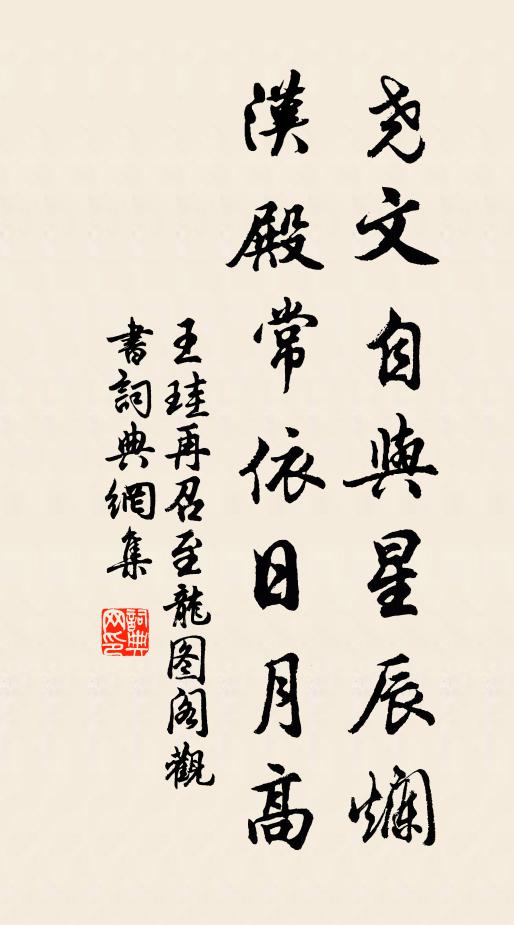 尧文自與星辰爛
漢殿常依日月高
王珪再召至龍图阁觀
書詞典網集
詞典网印